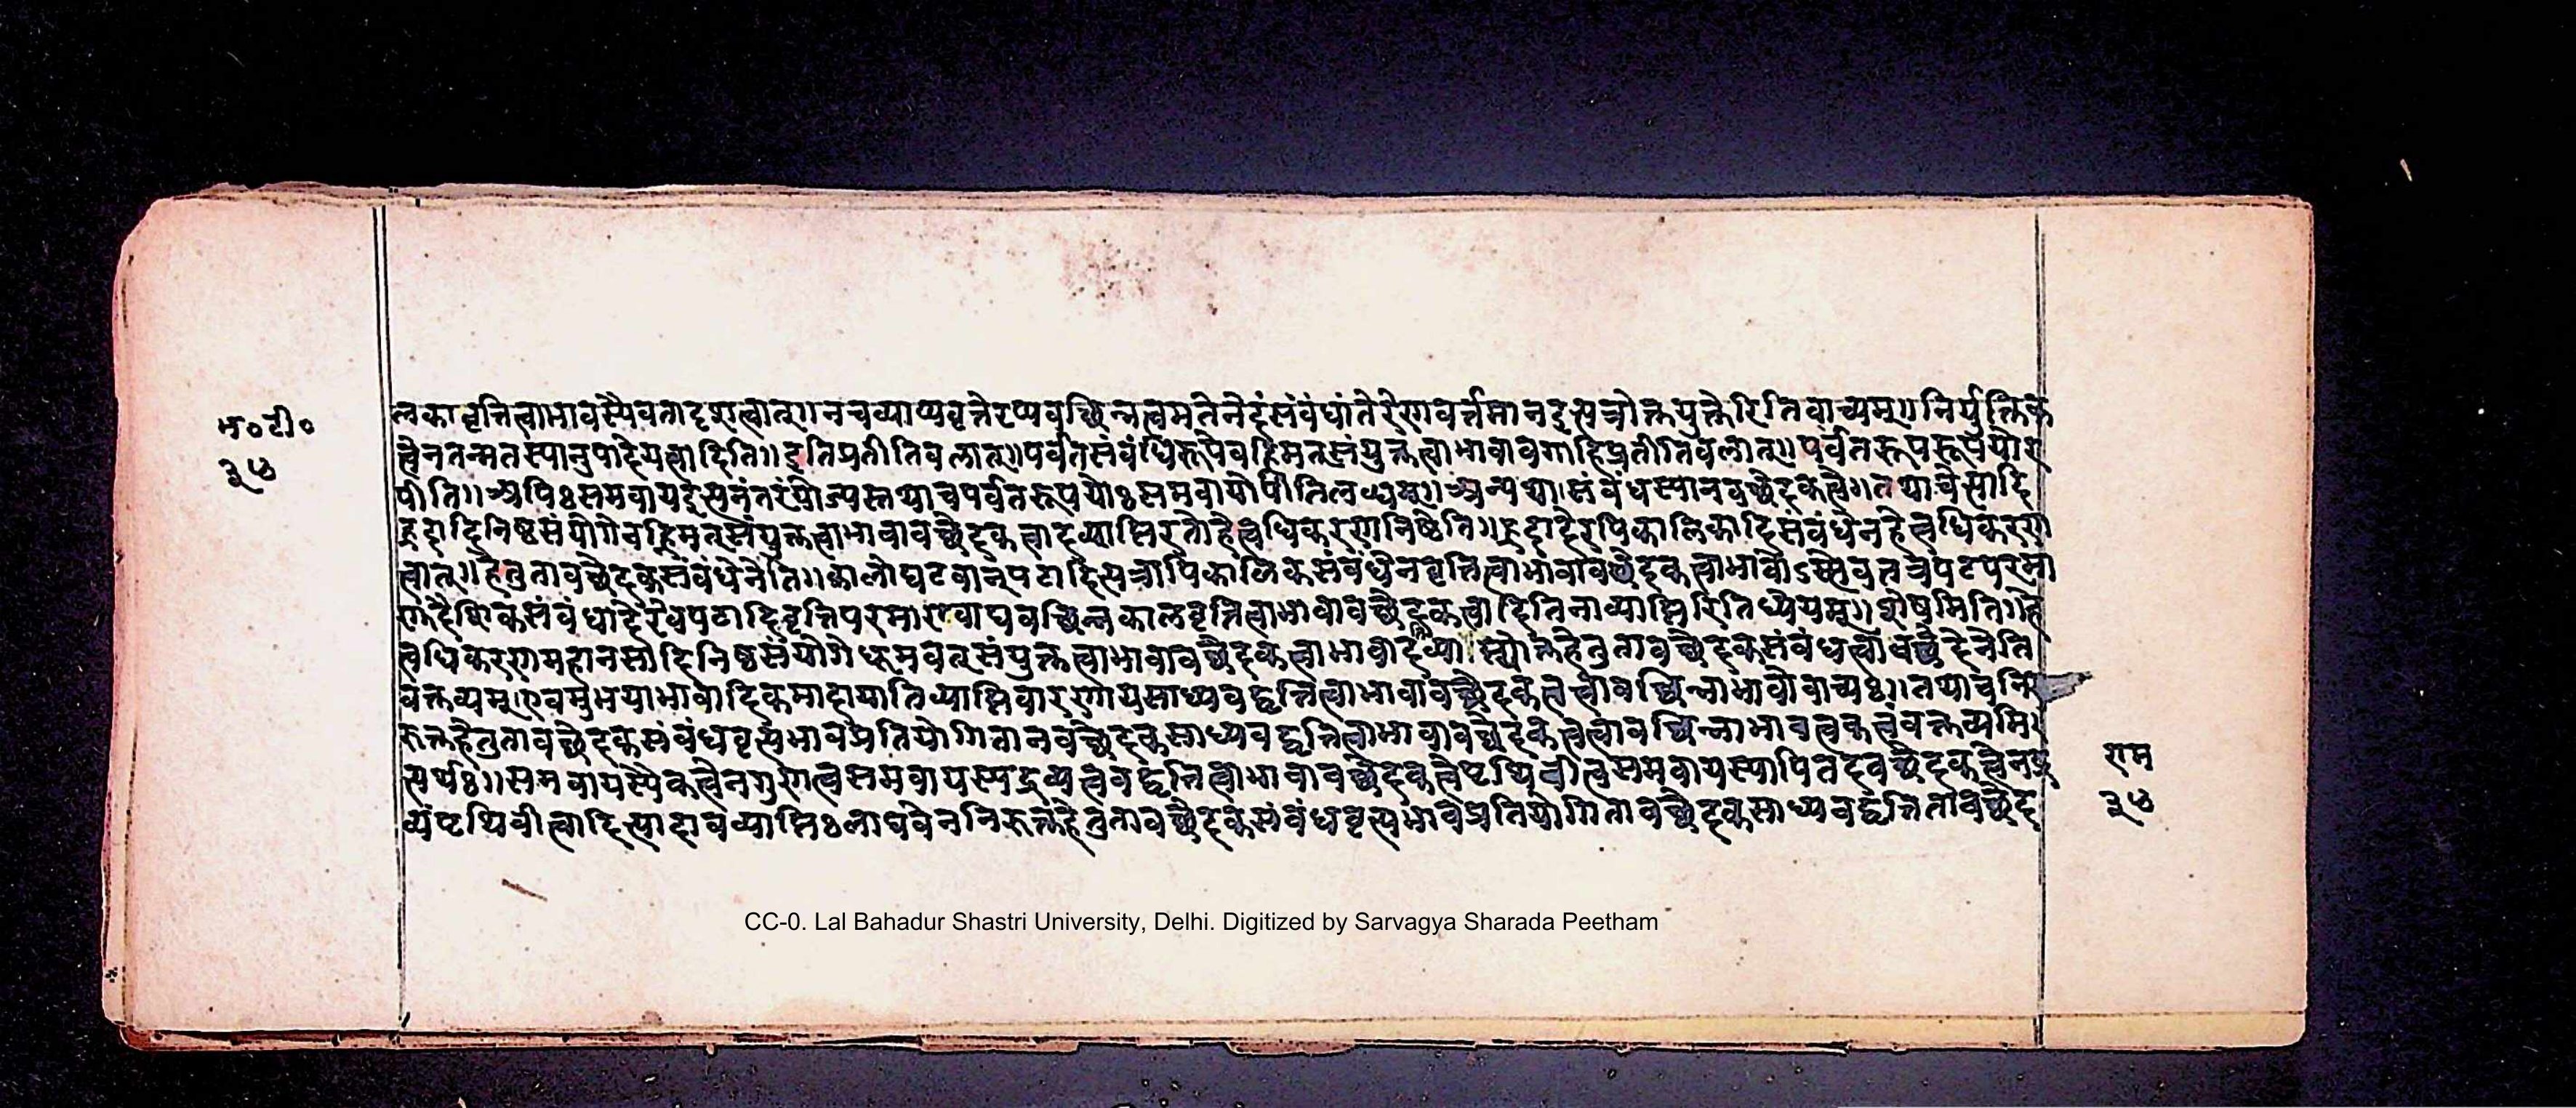 म॰टी॰
३५
लकावृत्तित्वाभावस्यैवतादृशत्वात्॥नचव्याप्यवृत्तेरप्यवच्छिन्नत्वमतेनेदंसंबंधांतेरेणवर्त्तमानदइत्यत्रोक्तयुक्तेरितिवाच्यम्॥निर्युक्तिक
त्वेनतन्मतस्यानुपादेयत्वादिति॥इतिप्रतीतिबलात्॥पर्वतसंबंधिरूपेवह्निमत्संयुक्तत्वाभावावगाहिप्रतीतिबलात्॥पर्वतरूपरूपयोर
पीति॥अपिःसमवायपदइत्यनंतरंयोज्यस्तथाचपर्वतरूपयोःसमवायोपीतिलभ्यम्॥अन्यथासंबंधस्यानवच्छेदकत्वे॥तथाचेत्यादि
ह्रदादिनिष्ठसंयोगेवह्निमत्संयुक्तत्वाभावावच्छेदकत्वादव्याप्तिरतोहेत्वधिकरणनिष्ठेति॥ह्रदादेरपिकालिकादिसंबंधेनहेत्वधिकरण
त्वात्॥हेतुतावच्छेदकसंबंधेनेति॥कालोघटवान्पटादित्यत्रापिकालिकसंबंधेनवृत्तित्वाभावावच्छेदकत्वाभावोऽस्त्येवतत्रपटपरमा
णुदैशिकसंबंधादेरेवपटादिवृत्तिपरमाण्वाद्यवच्छिन्नकालवृत्तित्वाभावावच्छेदकत्वादितिनाव्याप्तिरितिध्येयम्॥शेषमिति॥हे
त्वधिकरणमहानसादिनिष्ठसंयोगेधूमवत्संयुक्तत्वाभावावच्छेदकत्वाभावादव्याप्त्योक्तहेतुतावच्छेदकसंबंधत्वावच्छेदेनेति
वक्तव्यम्।एवमुभयाभावादिकमादायातिव्याप्तिवारणायसाध्यवद्वृत्तित्वाभावावच्छेदकत्वत्वावच्छिन्नाभावोवाच्यः॥तथाचनि
रुक्तहेतुतावच्छेदकसंबंधवृत्त्यभावप्रतियोगितानवच्छेदकसाध्यवद्वृत्तित्वाभावावच्छेदकत्वत्वावच्छिन्नाभावत्वकत्वंवक्तव्यमि
त्यर्थः॥समवायस्यैकत्वेनगुणत्वसमवायस्यद्रव्यत्ववद्वृत्तित्वाभावावच्छेदकत्वेपृथिवीत्वसमवायस्यापितदवच्छेदकत्वेनद्र
व्यंपृथिवीत्वादित्यादावव्याप्तिःलाघवेननिरुक्तहेतुतावच्छेदकसंबंधवृत्त्यभावप्रतियोगितावच्छेदकसाध्यवद्वृत्तितावच्छेद
राम
३५
CC-0. Lal Bahadur Shastri University, Delhi. Digitized by Sarvagya Sharada Peetham